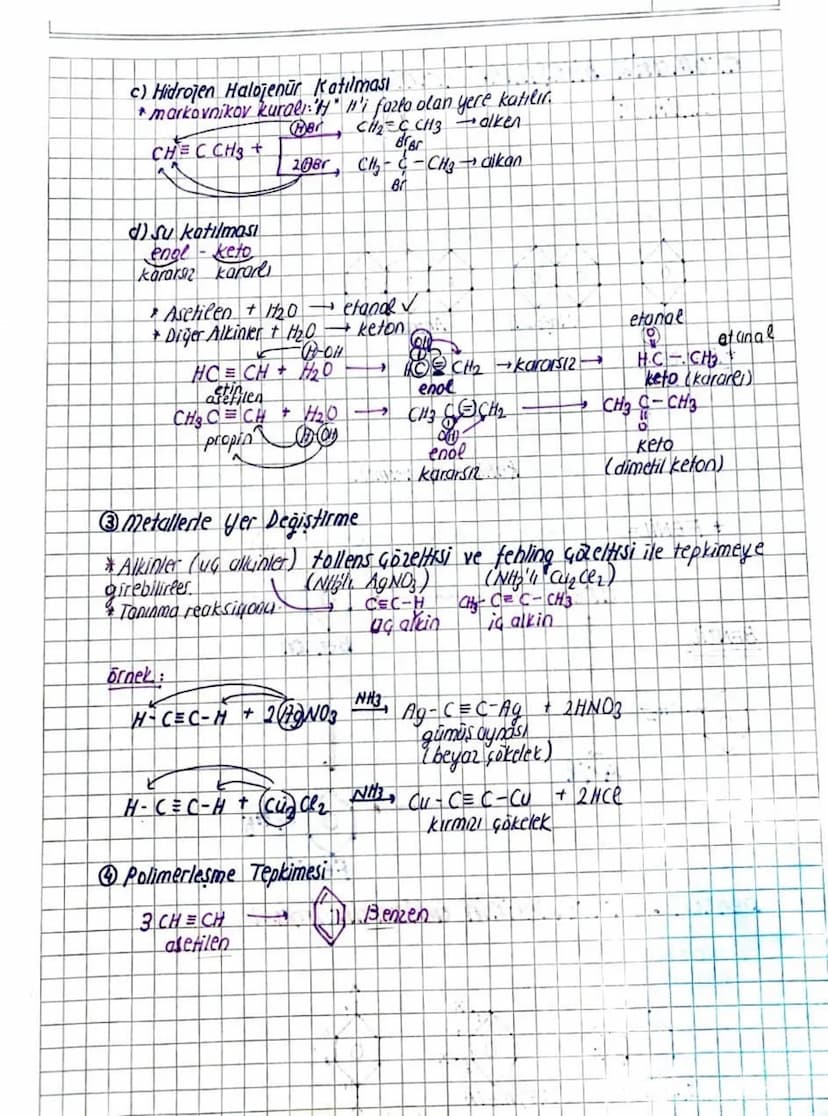 c) Hidrojen Halojenür Katılması
* markovnikov kuralı: "H" H'i fazla olan yere katılır.
HBr CH2 = C CH3 → alken
Br
CH ≡ C CH3 +
2HBr CH3 - C - CH3 → alkan
Br
Br
d) Su katılması
enol - keto
kararsız kararlı
* Asetilen + H2O → etanal ✓
* Diğer Alkinler + H2O → keton
etanal
H-OH OH O etanal
HC ≡ CH + H2O → HC = CH2 → kararsız → H.C - CH3
etin enol keto (kararlı)
asetilen
CH3 C ≡ CH + H2O → CH3 C = CH2 → CH3 C - CH3
propin H OH OH O
enol keto
kararsız (dimetil keton)
③ Metallerle Yer Değiştirme
* Alkinler (uç alkinler) tollens çözeltisi ve fehling çözeltisi ile tepkimeye
girebilirler. (NH3'lı AgNO3) (NH3'lı Cu2Cl2)
* Tanınma reaksiyonu → C≡C-H CH3- C ≡ C - CH3
uç alkin iç alkin
örnek:
H - C≡C - H + 2AgNO3 NH3→ Ag - C ≡ C - Ag + 2HNO3
gümüş aynası
(beyaz çökelek)
H - C ≡ C - H + Cu2 Cl2 NH3→ Cu - C ≡ C - Cu + 2HCl
kırmızı çökelek
④ Polimerleşme Tepkimesi
3 CH ≡ CH → Benzen
asetilen